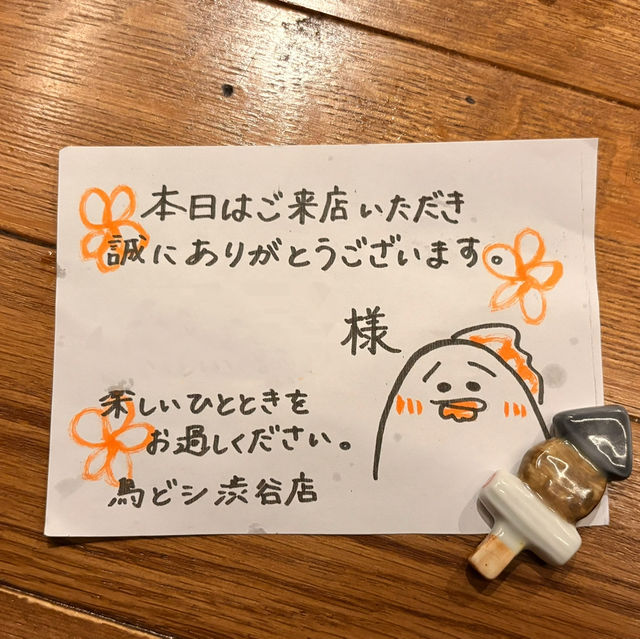 本日はご来店いただき
誠にありがとうございます。
様
楽しいひとときを
お過しください。
鳥どシ渋谷店